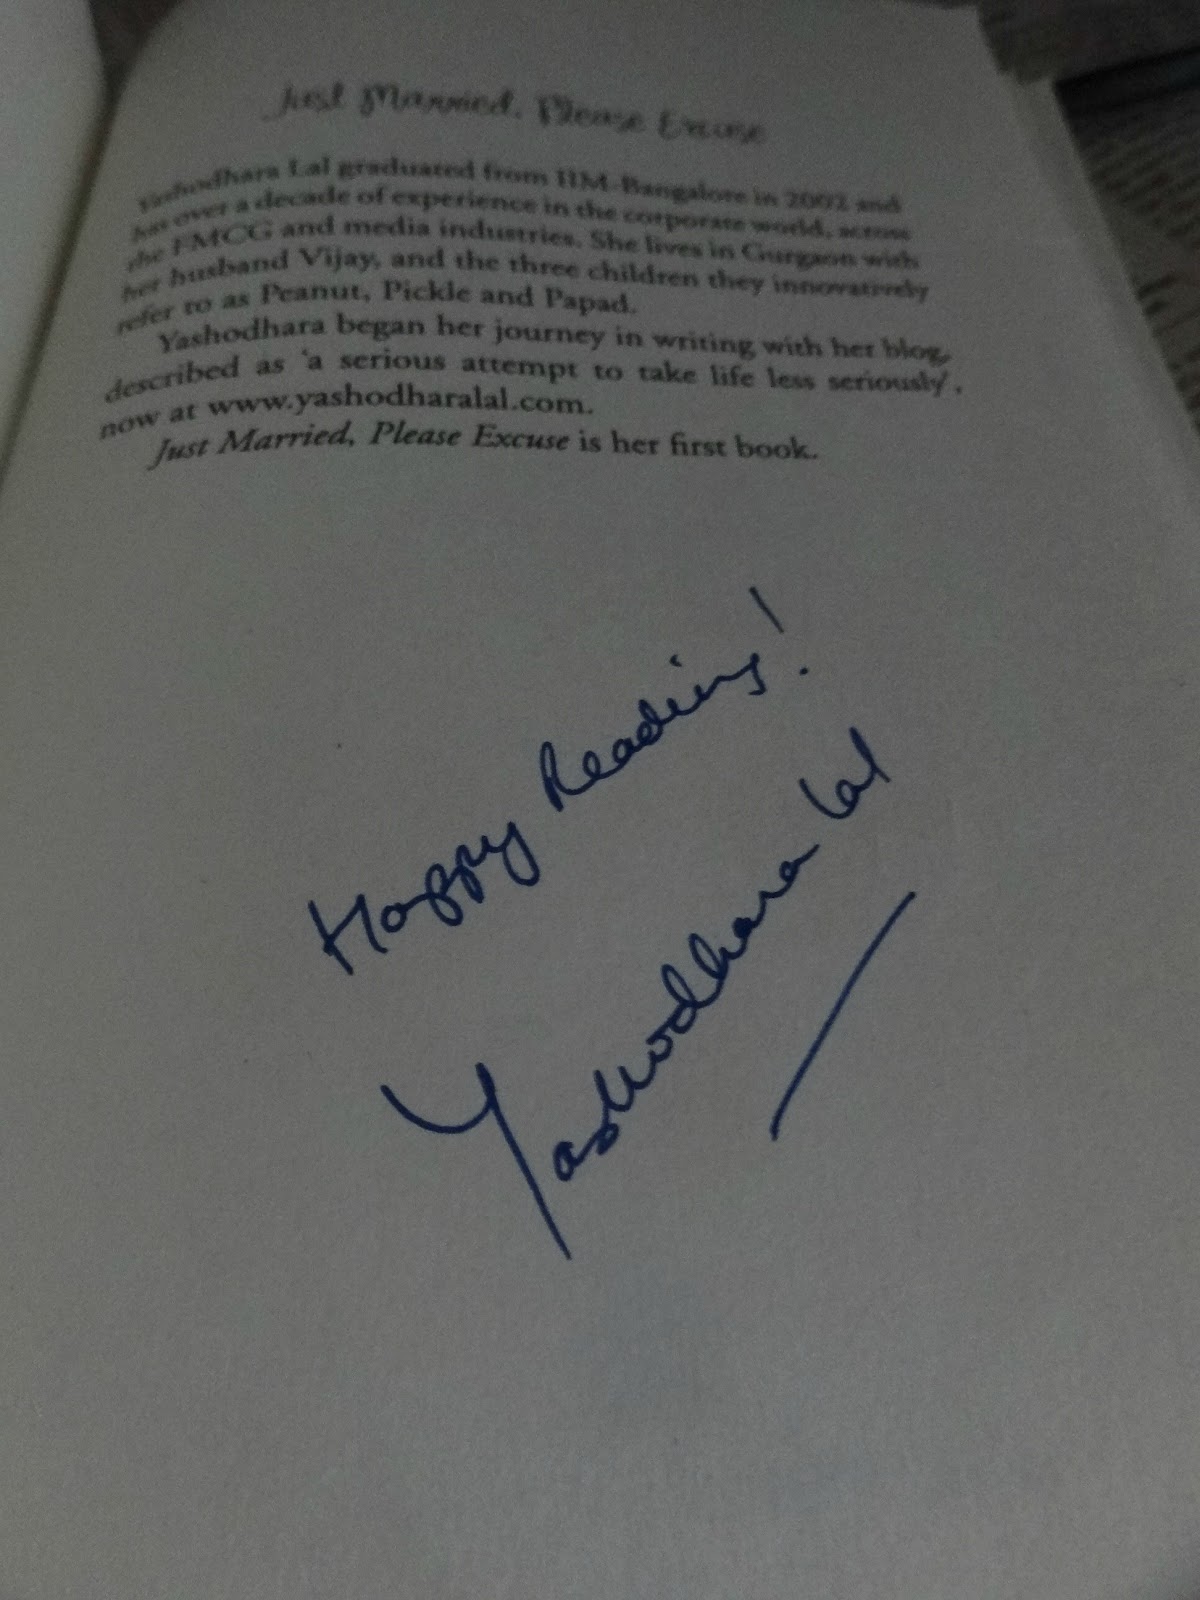 Just Married, Please Excuse
Yashodhara Lal graduated from IIM-Bangalore in 2002 and
has over a decade of experience in the corporate world, across
the FMCG and media industries. She lives in Gurgaon with
her husband Vijay, and the three children they innovatively
refer to as Peanut, Pickle and Papad.
Yashodhara began her journey in writing with her blog,
described as 'a serious attempt to take life less seriously',
now at www.yashodharalal.com.
Just Married, Please Excuse is her first book.
Happy Reading!
Yashodhara Lal